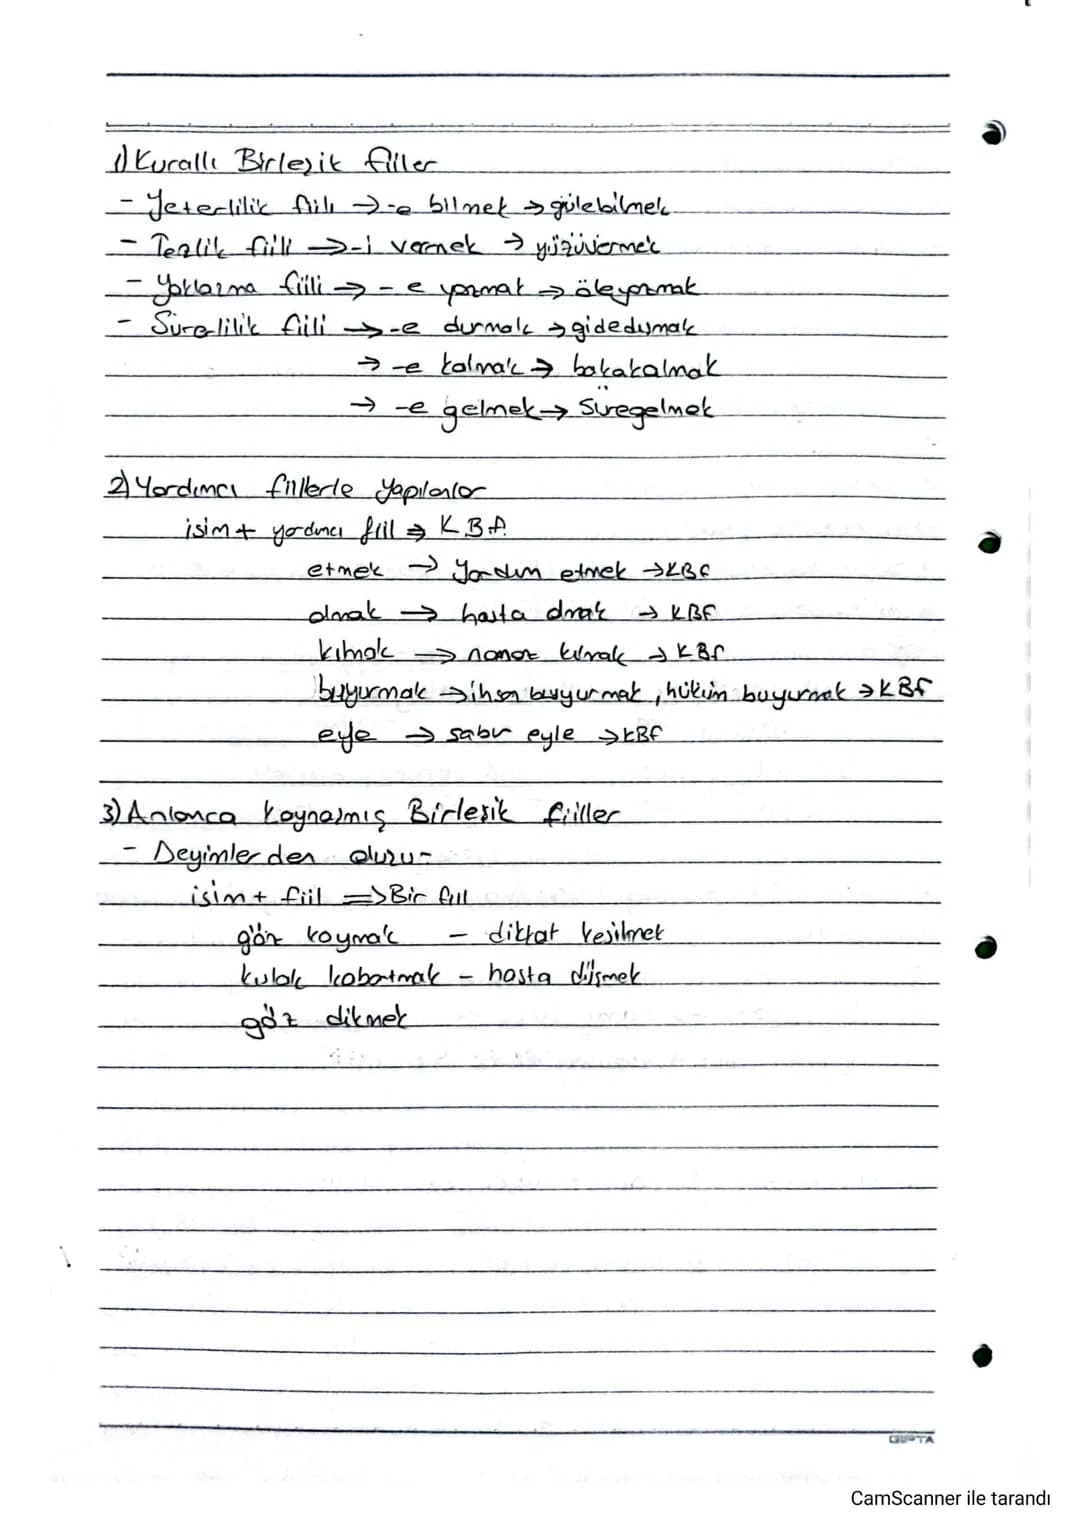 1) Kurallı Birleşik fiiller
- Yeterlilik fiili → -e bilmek → gülebilmek
- Tezlik fiili → -i vermek → yüzüvermek
- Yaklaşma fiili → - e yazmak → öleyazmak
- Sürelilik fiili → -e durmak → gidedurmak
→ -e kalmak → bakakalmak
→ -e gelmek → Süregelmek
2) Yardımcı fiillerle yapılanlar
isim + yardımcı fiil ⇒ K.B.F.
etmek → Yardım etmek → KBF
olmak → hasta olmak → KBF
kılmak → namaz kılmak → KBF
buyurmak → ihsan buyurmak, hüküm buyurmak → KBF
eyle → sabır eyle → KBF
3) Anlamca Kaynaşmış Birleşik fiiller
- Deyimlerden oluşur
isim + fiil ⇒ Bir fiil
göz koymak - dikkat kesilmek
kulak kabartmak - hasta düşmek
göz dikmek
GIPTA
CamScanner ile tarandı